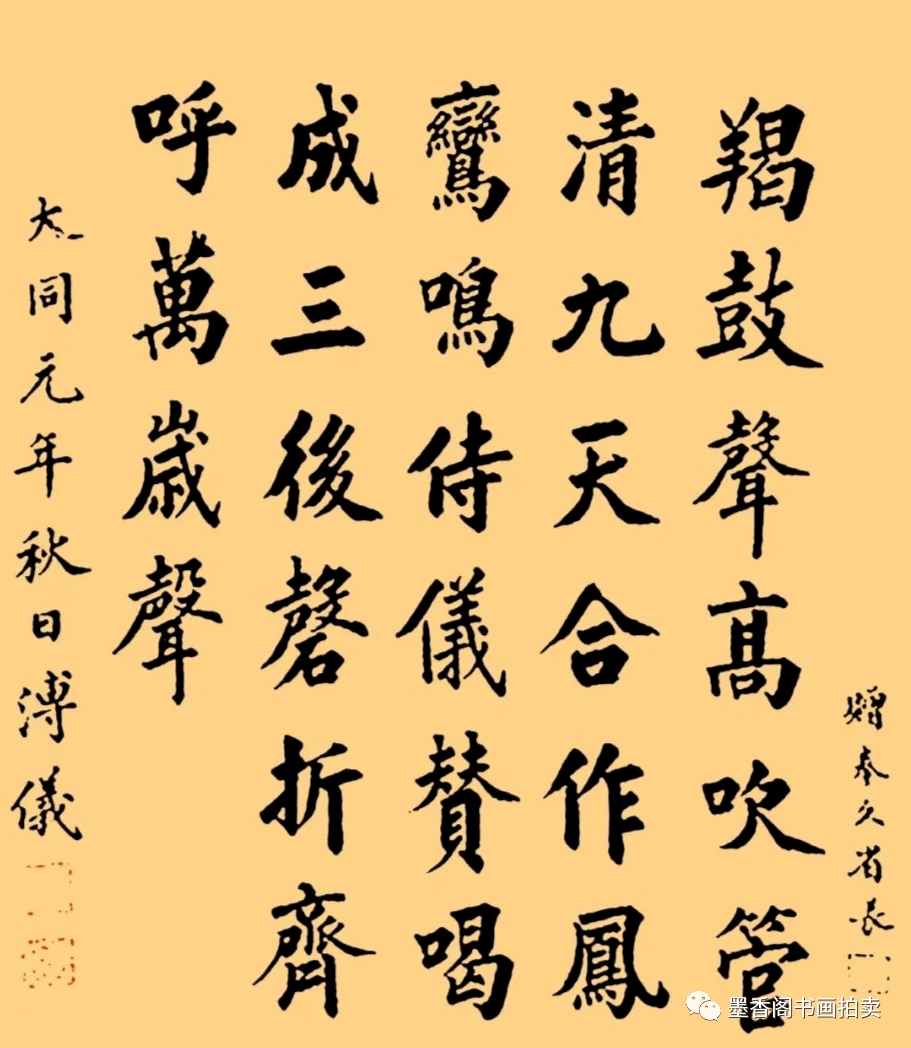 贈奉久省長
羯鼓聲髙吹管
清九天合作鳳
鸞鳴侍儀賛喝
成三後磬折齊
呼萬歲聲
大同元年秋日溥儀
墨香阁书画拍卖